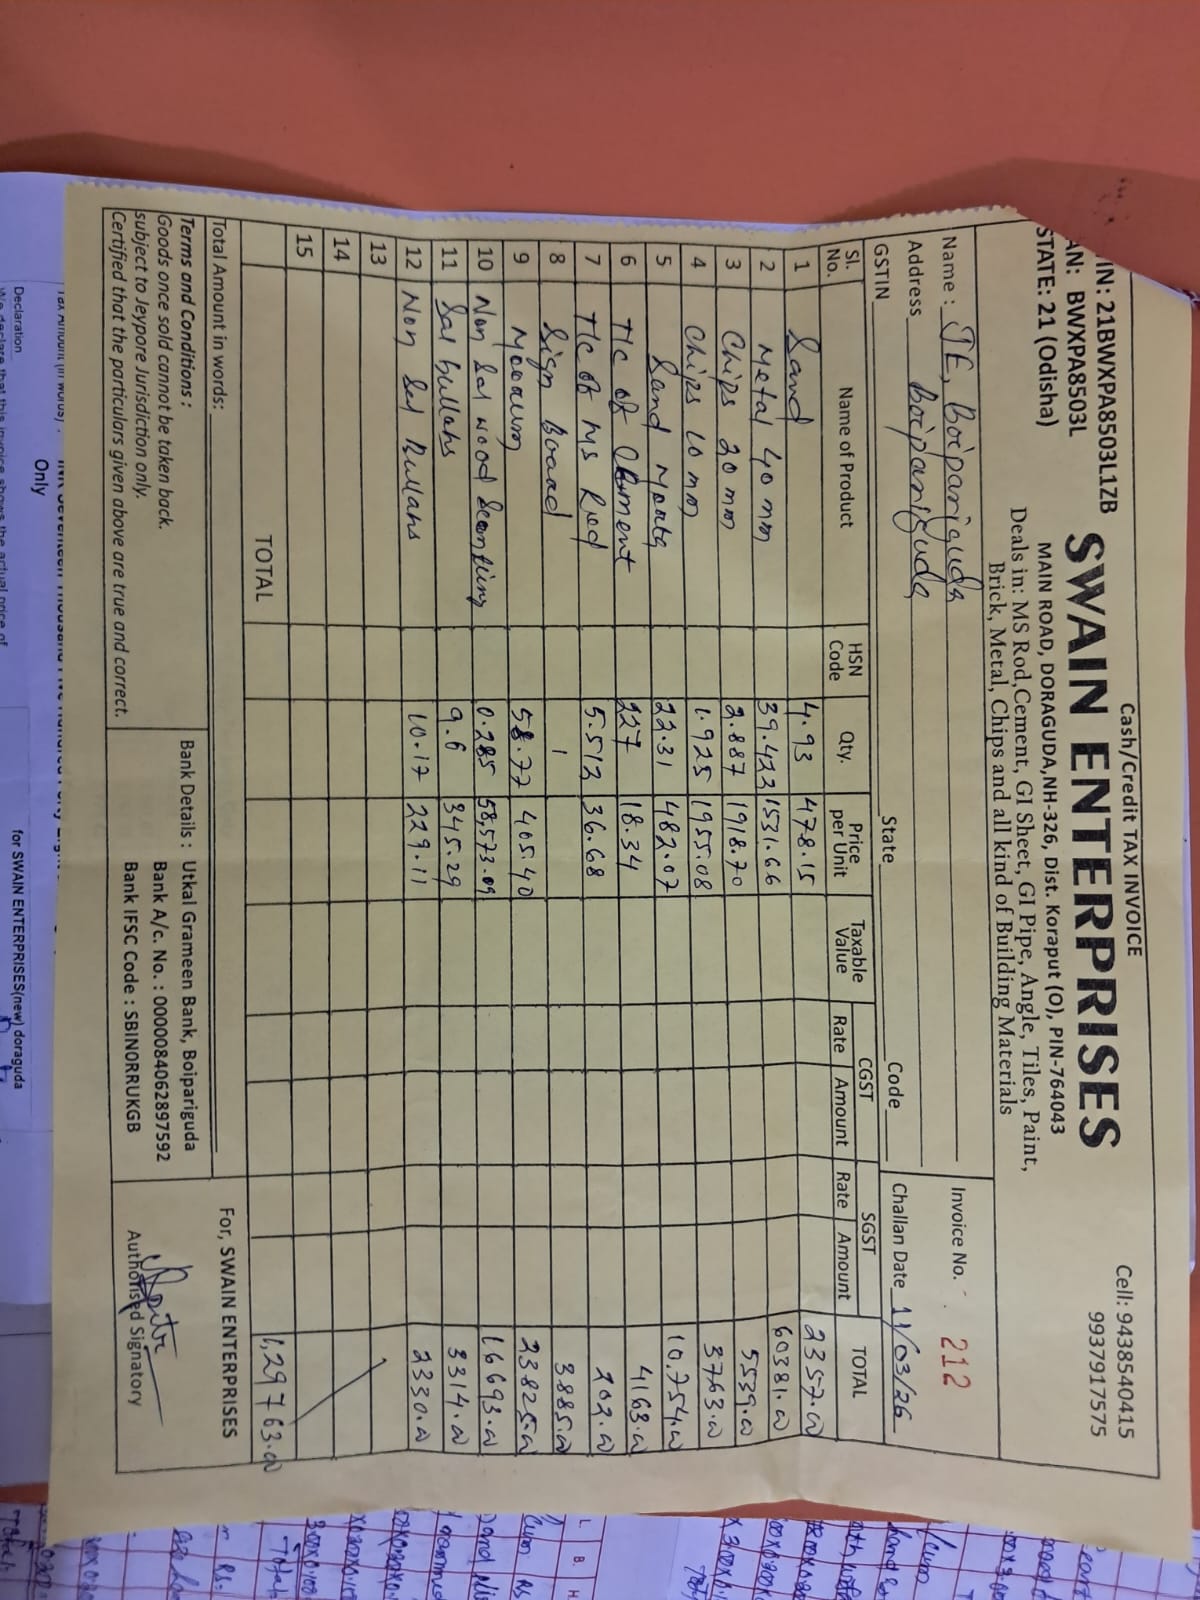 Cash/Credit TAX INVOICE
Cell: 9438540415
9937917575
TIN: 21BWXPA8503L1ZB
AN: BWXPA8503L
STATE: 21 (Odisha)
SWAIN ENTERPRISES
MAIN ROAD, DORAGUDA,NH-326, Dist. Koraput (O), PIN-764043
Deals in: MS Rod,Cement, GI Sheet, GI Pipe, Angle, Tiles, Paint,
Brick, Metal, Chips and all kind of Building Materials
Name : JE, Boipariguda
Invoice No. 212
Address Boipariguda
Challan Date 11/03/26
GSTIN State Code
Sl. No. Name of Product HSN Code Qty. Price per Unit Taxable Value CGST Rate Amount SGST Rate Amount TOTAL
1 Sand 4.93 478.15 2357.00
2 Metal 40 mm 39.422 1531.66 60381.00
3 Chips 20 mm 2.887 1918.70 5539.00
4 Chips 10 mm 1.925 1955.08 3763.00
5 Sand 22.31 482.07 10.754.00
6 T/c of Cement 227 18.34 4163.00
7 T/c of MS Rod 5.512 36.68 202.00
8 Sign Board 1 3885.00
9 Mooaum 58.77 405.40 23825.00
10 Non Sal wood Scantling 0.285 58,573.09 16693.00
11 Sal bullahs 9.6 345.29 3314.00
12 Non Sal Bullahs 10.17 229.11 2330.00
13
14
15
TOTAL 1,29763.00
Total Amount in words:
For, SWAIN ENTERPRISES
Terms and Conditions :
Goods once sold cannot be taken back.
subject to Jeypore Jurisdiction only.
Certified that the particulars given above are true and correct.
Bank Details : Utkal Grameen Bank, Boipariguda
Bank A/c. No. : 0000084062897592
Bank IFSC Code : SBIN0RRUKGB
Authorised Signatory
Only
Declaration
for SWAIN ENTERPRISES(new) doraguda